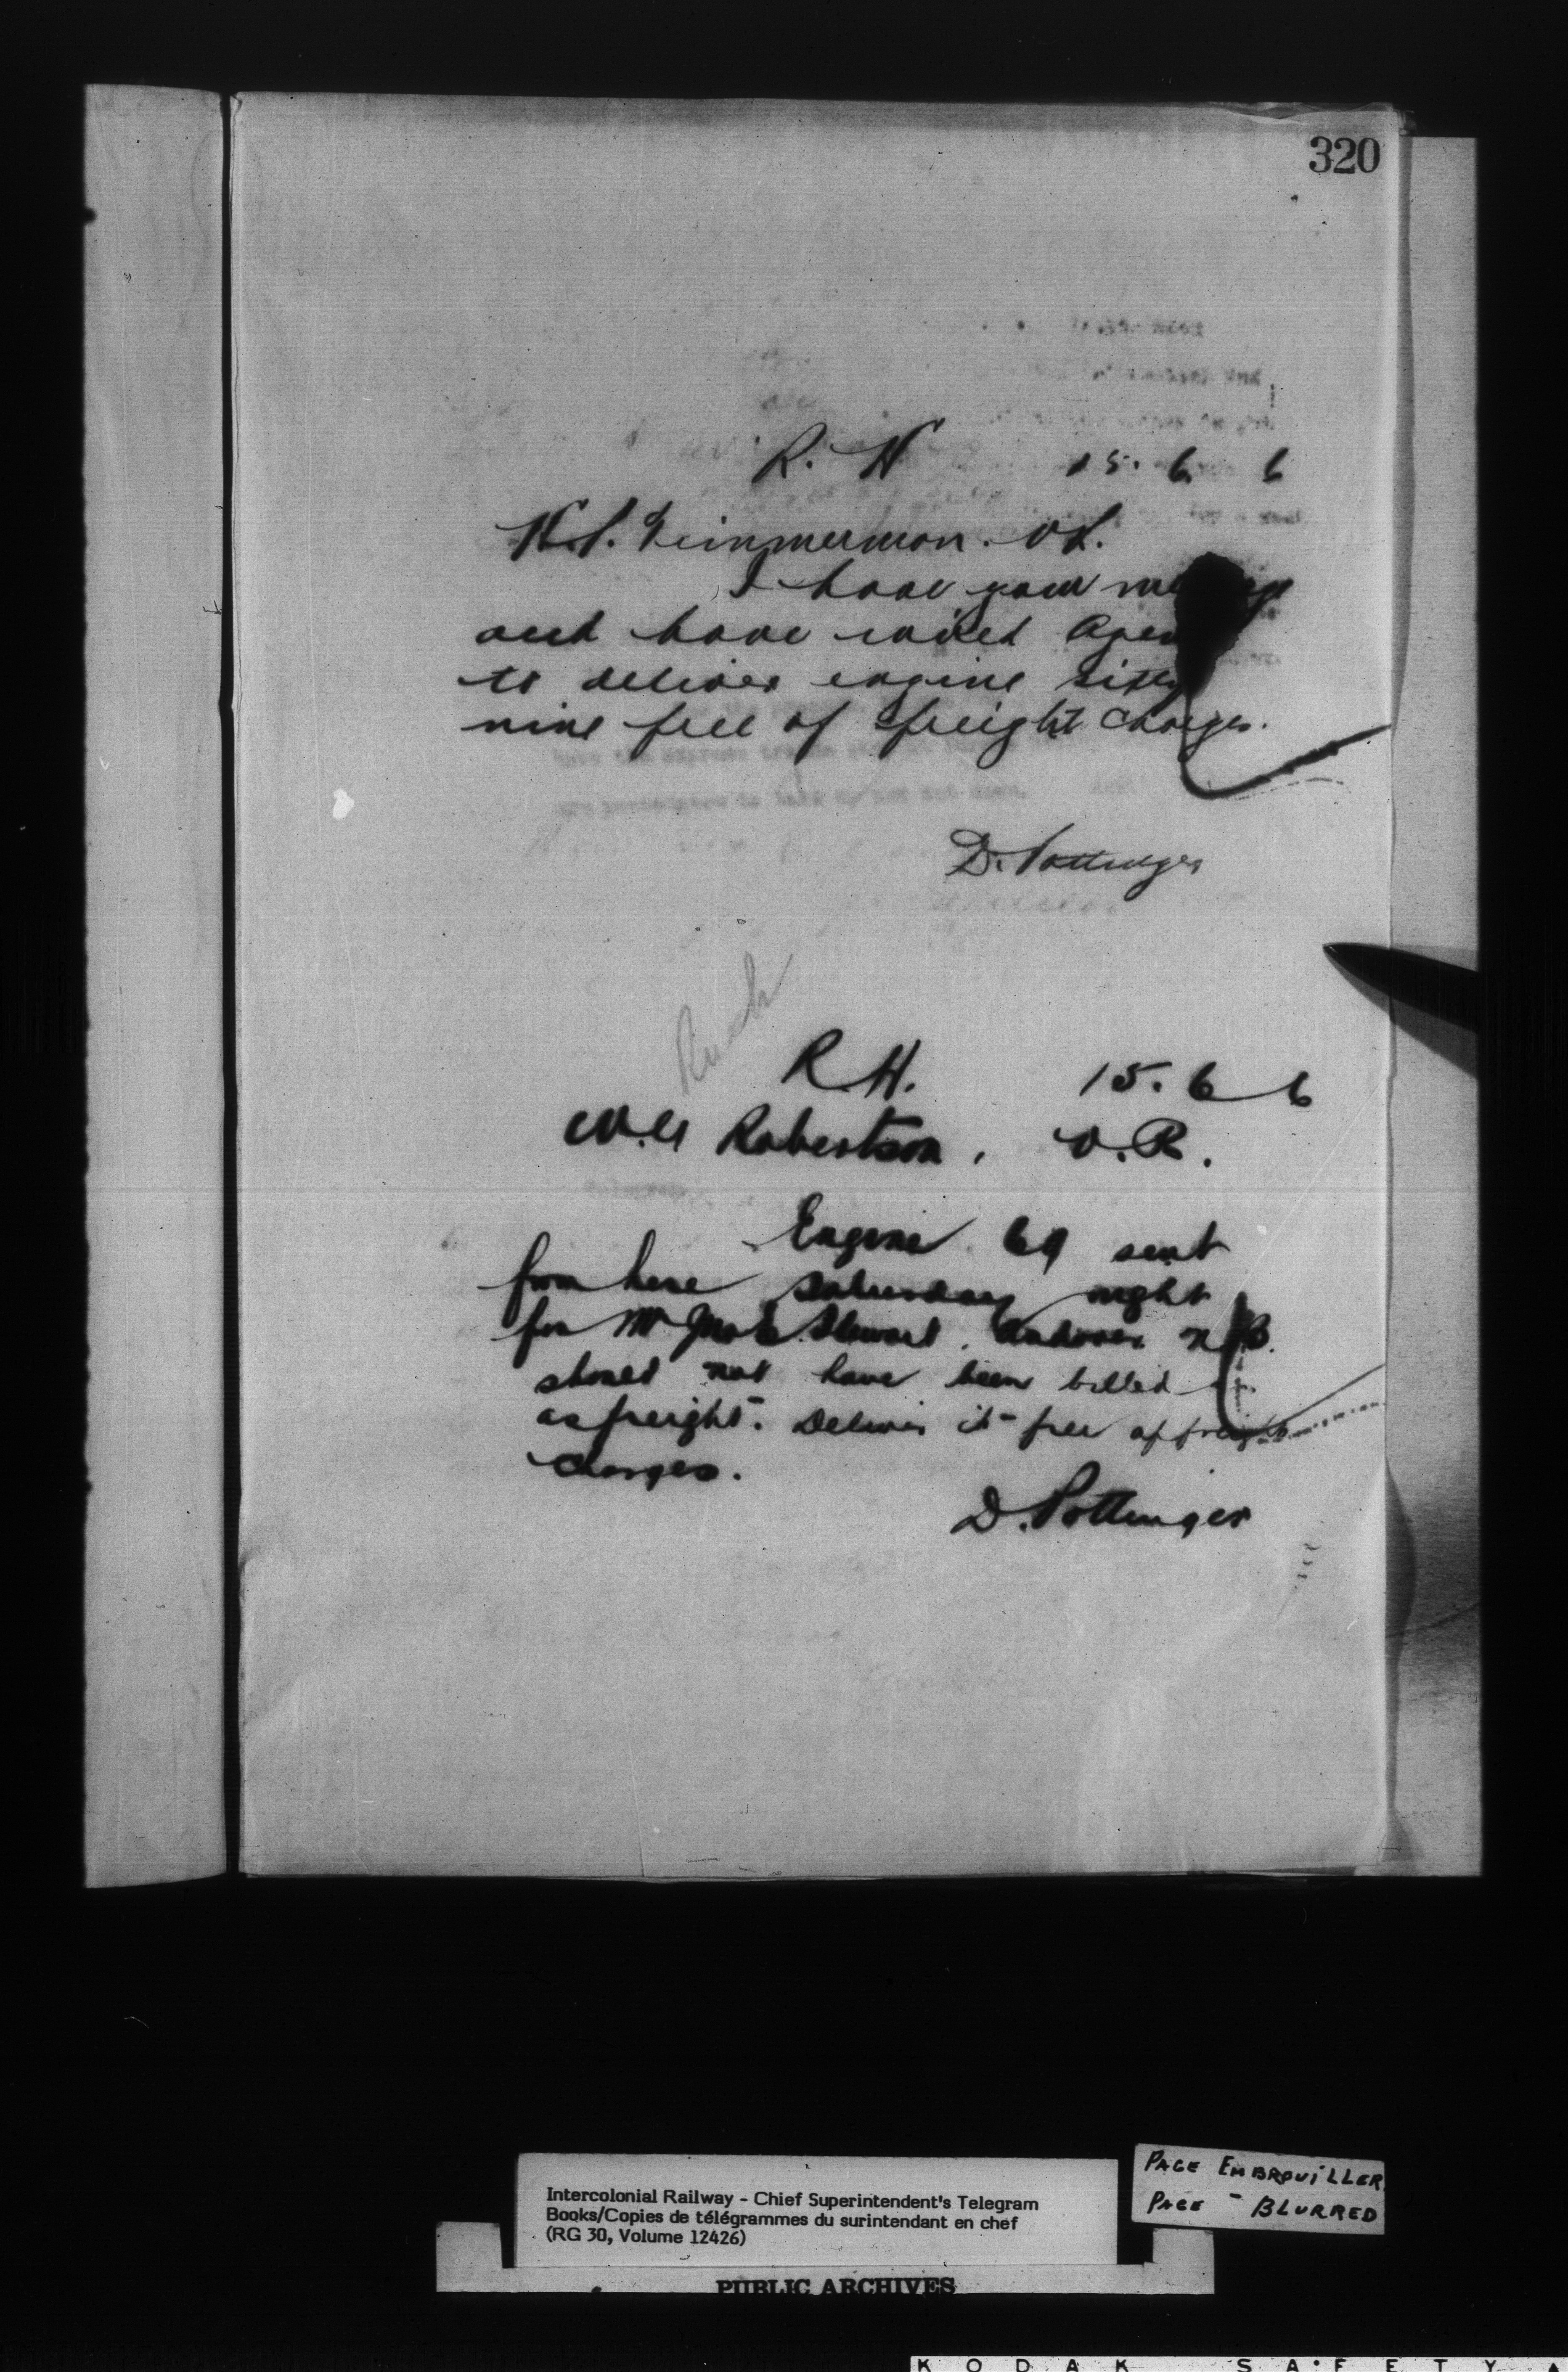 320
R. H 15. 6 6
I have your
and have wired Agent
to deliver engine sixty
nine free of freight charges.
D. Pottinger
Rush
R.H. 15. 6 6
Robertson, O.R.
Engine 69 sent
from here Saturday night
for Mr Stewart. Andover N.B.
should not have been billed
as freight. Deliver it free of freight
charges.
D. Pottinger
Intercolonial Railway - Chief Superintendent's Telegram
Books/Copies de télégrammes du surintendant en chef
(RG 30, Volume 12426)
PAGE EMBROUILLER
PAGE - BLURRED
PUBLIC ARCHIVES
KODAK SAFETY